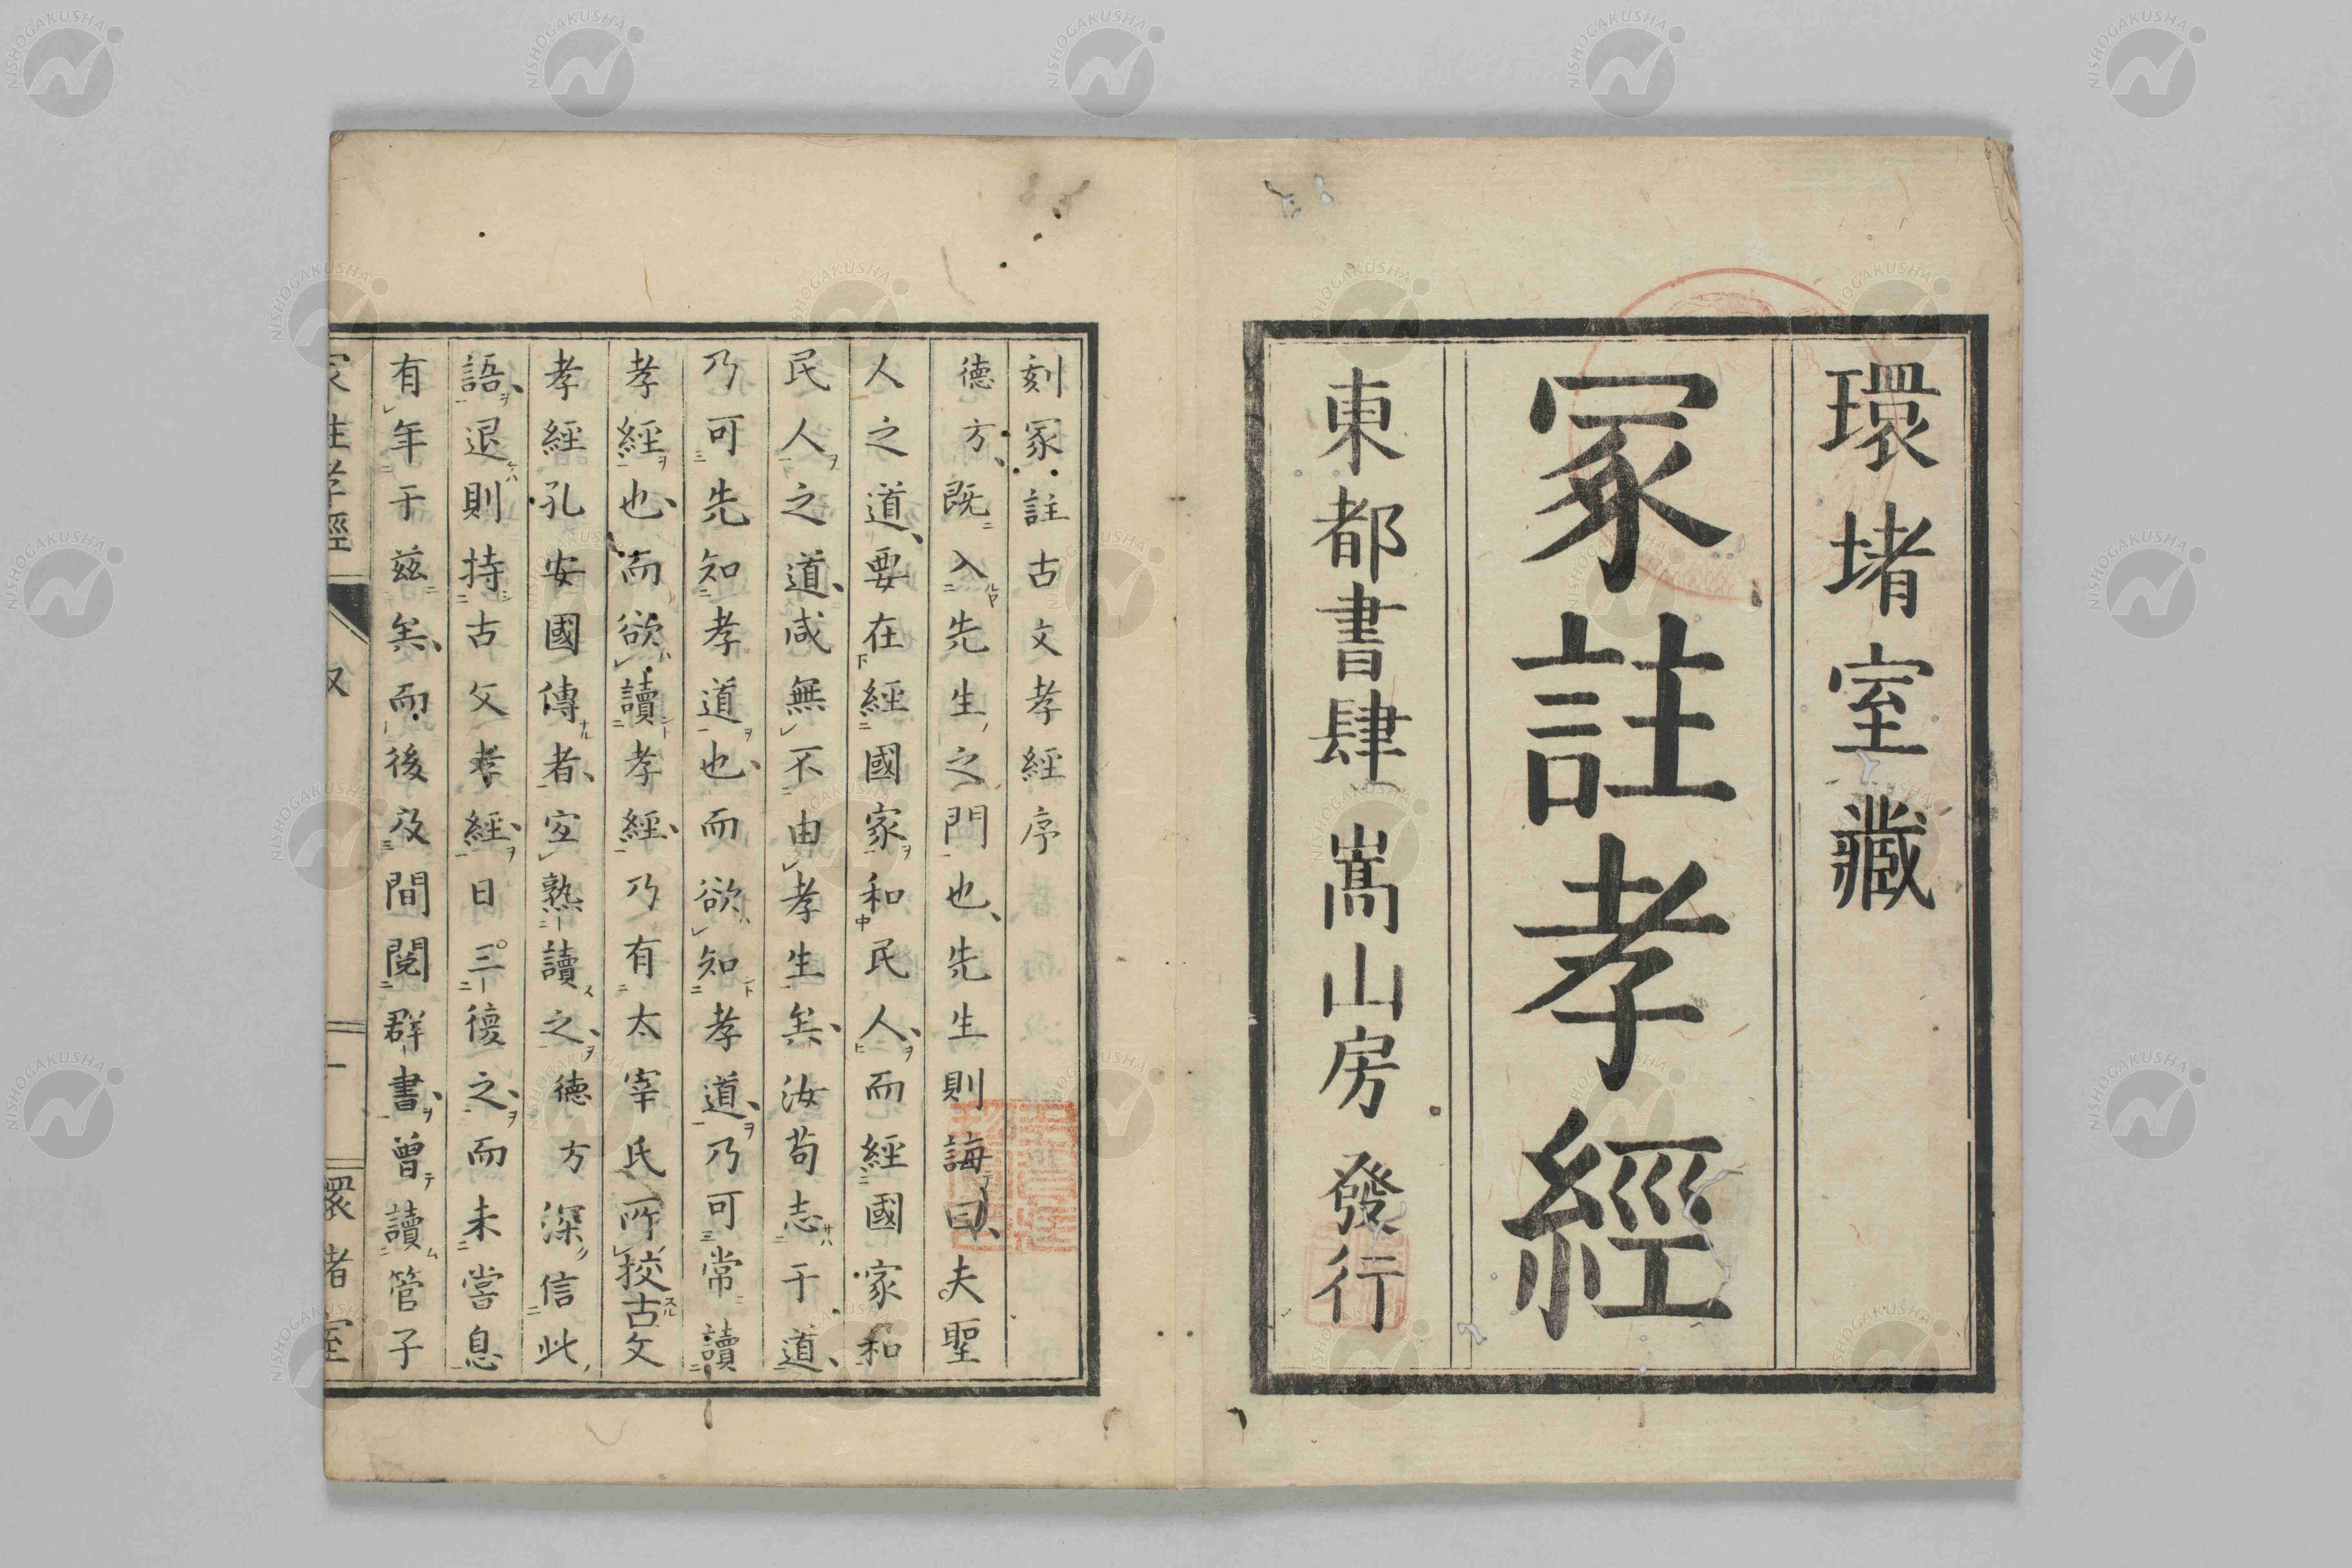 環堵室藏
冢註孝經
東都書肆 嵩山房 發行
刻冢註古文孝經序
德方既入先生之門也先生則誨曰夫聖
人之道要在經國家和民人而經國家和
民人之道咸無不由孝生矣汝苟志于道
乃可先知孝道也而欲知孝道乃可常讀
孝經也而欲讀孝經乃有太宰氏所挍古文
孝經孔安國傳者宜熟讀之德方深信此
語退則持古文孝經日三復之而未嘗息
有年于茲矣而後及間閱群書曾讀管子
冢註孝經 叙 一 環堵室
NISHOGAKUSHA